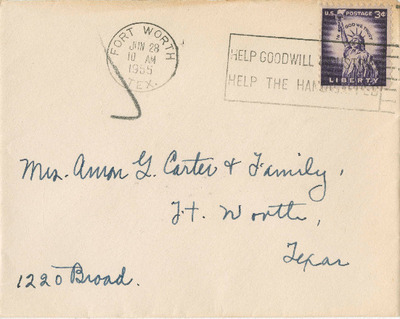 FORT WORTH
JUN 28
10 AM
1955
TEX.
HELP GOODWILL
HELP THE
U.S. POSTAGE 3¢
IN GOD WE TRUST
LIBERTY
Mrs. Amon G. Carter & Family,
Ft. Worth,
Texas
1220 Broad.